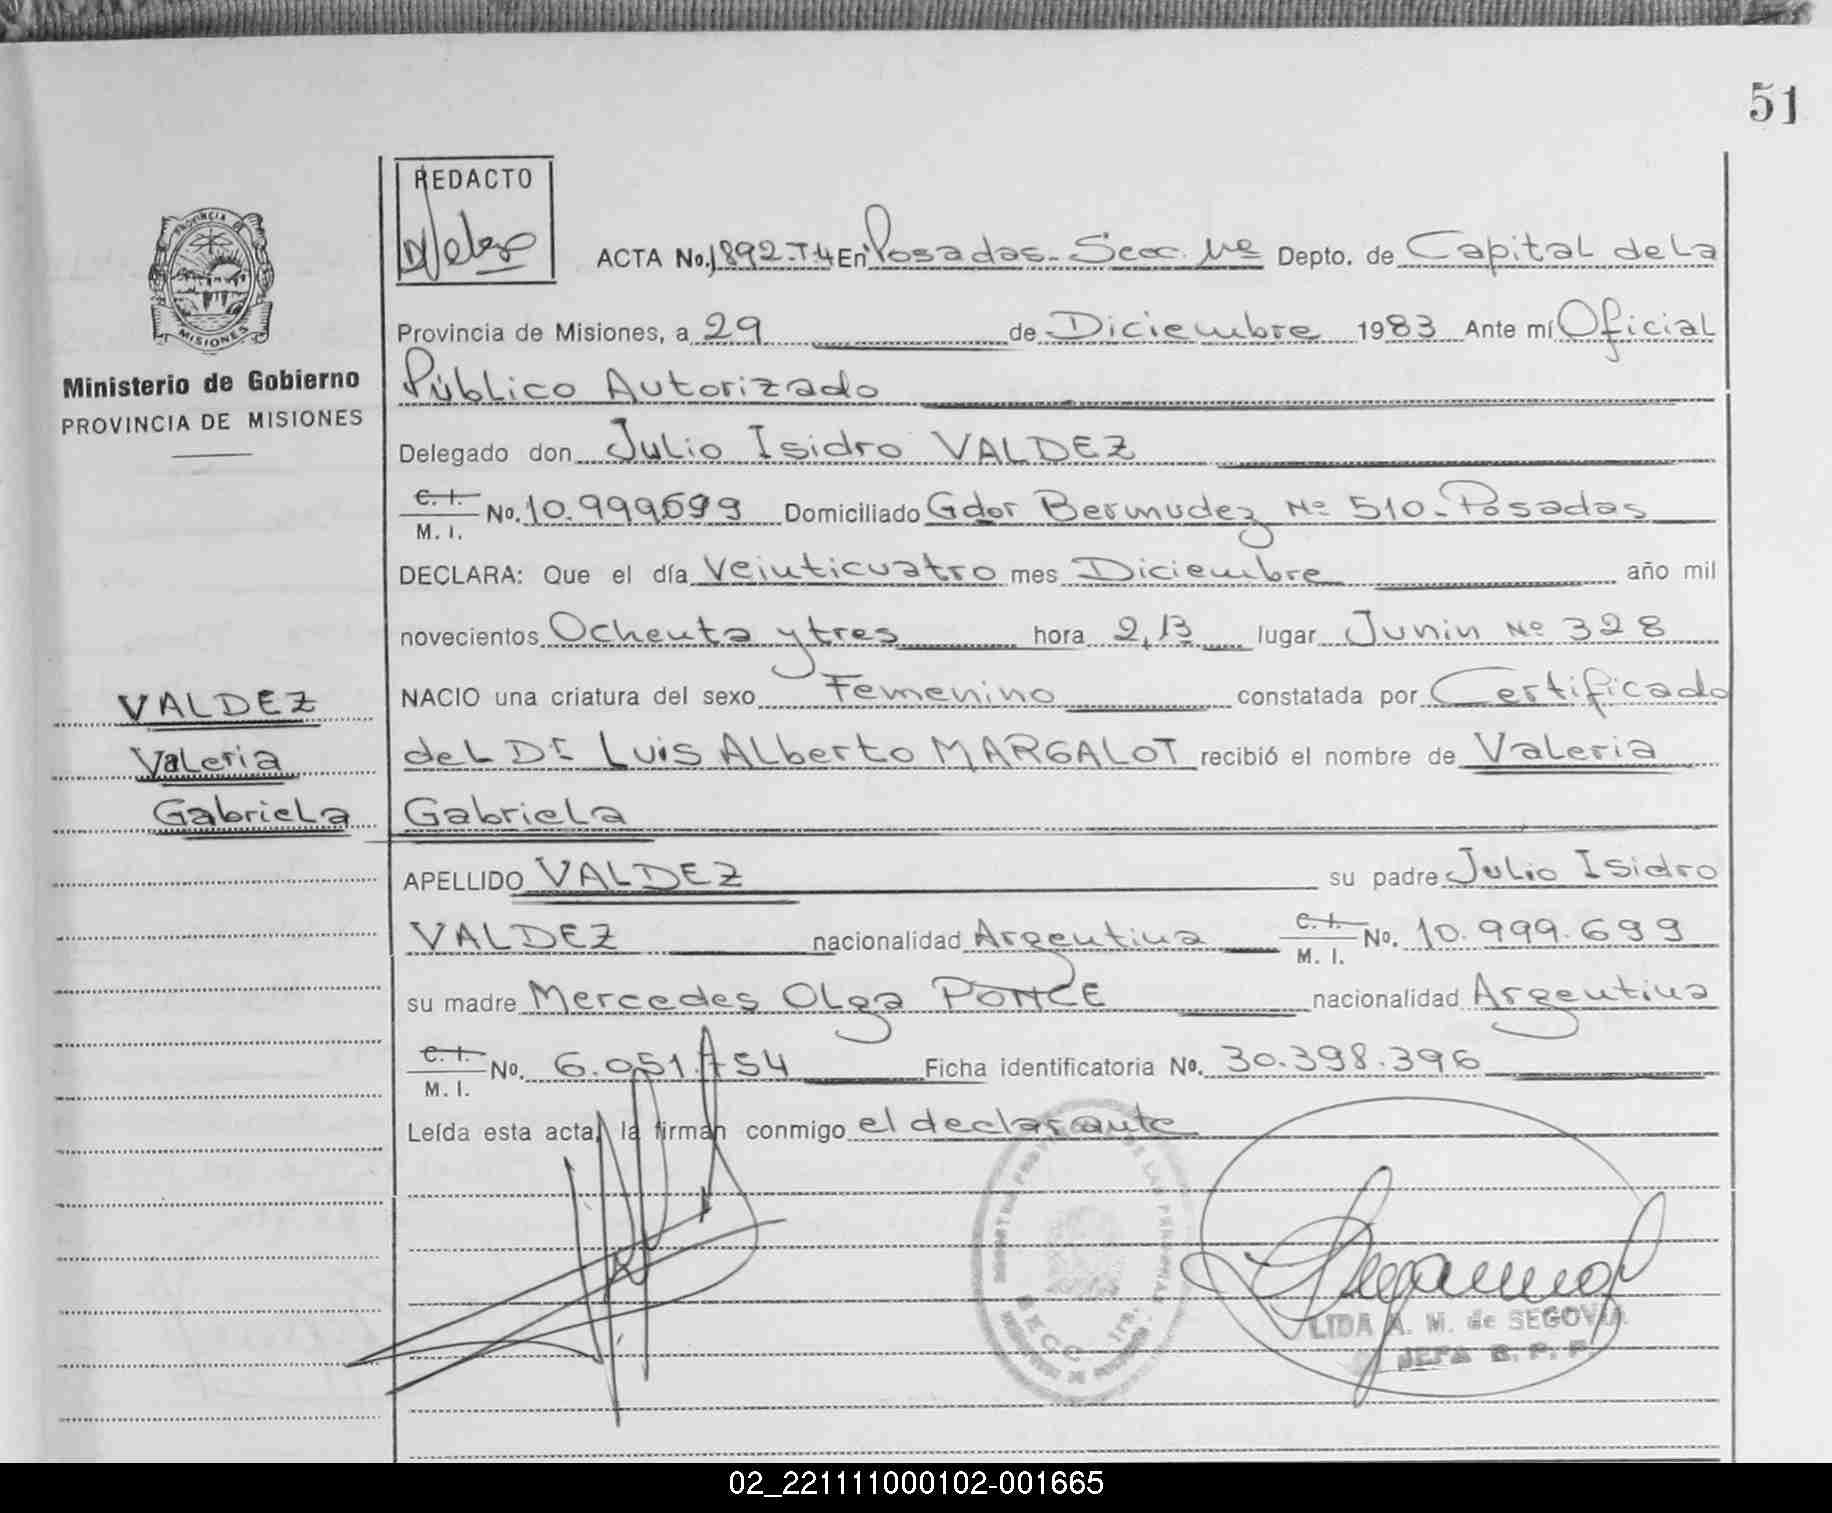 51
REDACTO
PROVINCIA DE
MISIONES
Ministerio de Gobierno
PROVINCIA DE MISIONES
ACTA No. 1892-T.4 En Posadas-Secc. 1ra Depto. de Capital de La
Provincia de Misiones, a 29 de Diciembre 1983 Ante mí Oficial
Público Autorizado
Delegado don Julio Isidro VALDEZ
C. I. M. I. No. 10.999.699 Domiciliado Gdor Bermudez Nº 510-Posadas
DECLARA: Que el día Veinticuatro mes Diciembre año mil
novecientos Ochenta y tres hora 2,13 lugar Junin Nº 328
NACIO una criatura del sexo Femenino constatada por Certificado
del Dr Luis Alberto MARGALOT recibió el nombre de Valeria
Gabriela
VALDEZ
Valeria
Gabriela
APELLIDO VALDEZ su padre Julio Isidro
VALDEZ nacionalidad Argentina C. I. M. I. No. 10.999.699
su madre Mercedes Olga PONCE nacionalidad Argentina
C. I. M. I. No. 6.051.754 Ficha identificatoria No. 30.398.396
Leída esta acta, la firman conmigo el declarante
LIDA A. M. de SEGOVIA
JEFA
02_221111000102-001665